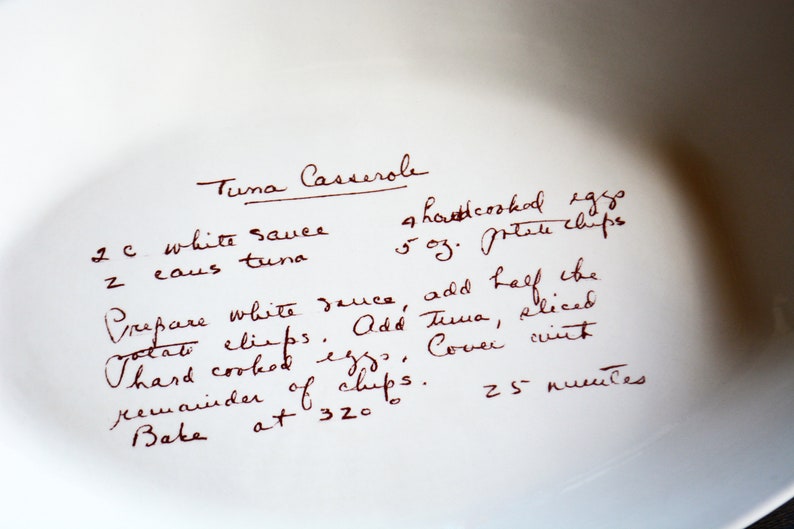 Tuna Casserole
2 c white sauce 4 hard cooked eggs
2 cans tuna 5 oz. potato chips
Prepare white sauce, add half the
potato chips. Add tuna, sliced
hard cooked eggs. Cover with
remainder of chips.
Bake at 320° 25 minutes